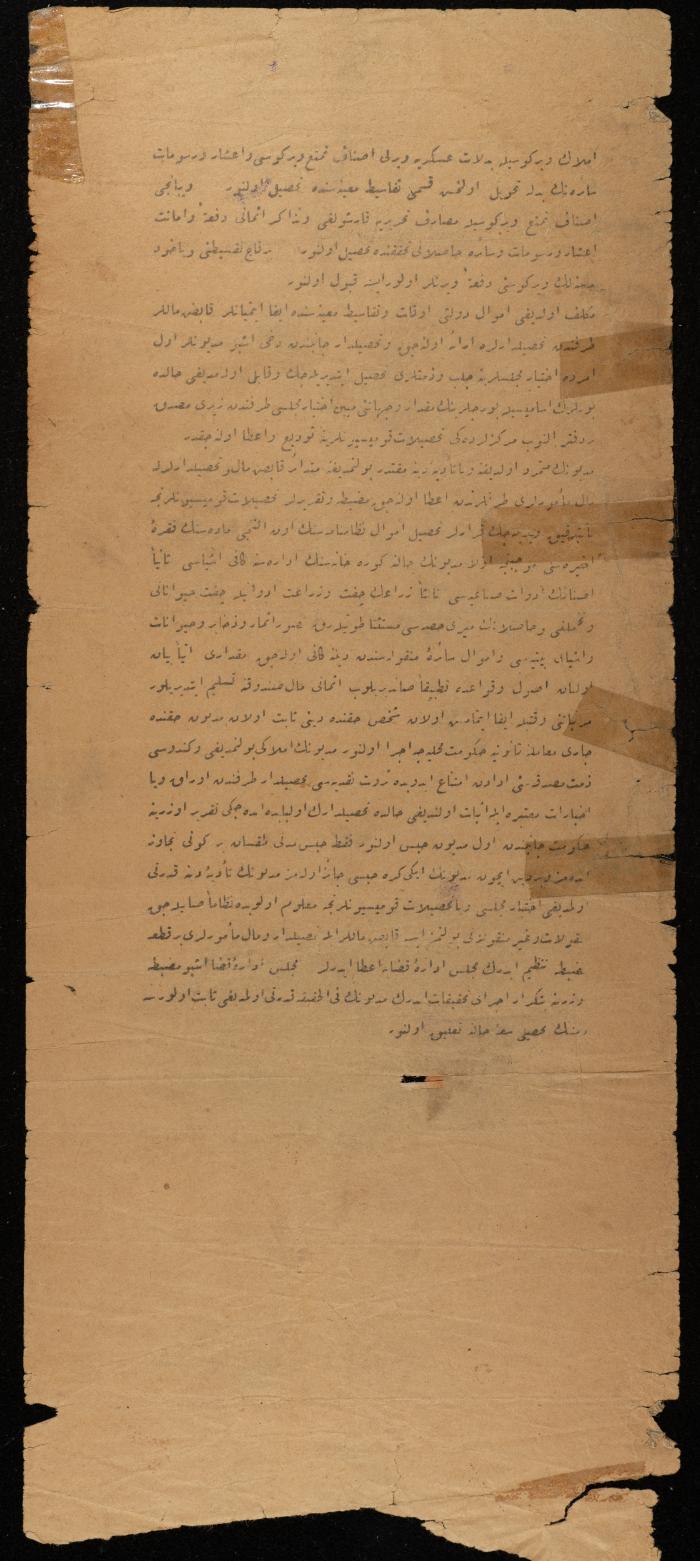 املاك ويركوسيله بدلات عسكريه ويرلى اصناف تمتع ويركوسى واعشار ورسومات
سائره نك بدله تحويل اولنمش قسمى تقاسيط معينه سنده تحصيل اولنور ويبانجى
اصناف تمتع ويركوسيله مصارف تحريريه قارشولغى وتذاكر اثمانى دفعةً وامانت
اعشار ورسومات وسائره حاصلاتى تحققنده تحصيل اولنور برقاچ تقسيطنى وياخود
جمله نك ويركوسنى دفعةً ويرنلر اولورايسه قبول اولنور
مكلف اولديغى اموال دولتى اوقات وتقاسيط معينه سنده ايفا ايتميانلر قابض ماللر
طرفندن تحصيلدارلره ارائه اوله جق وتحصيلدار جانبندن دخى اشبو مديونلر اول
امرده اختيار مجلسلرينه جلب وذمتلرى تحصيل ايتديريله جك وقابلى اولمديغى حالده
بونلرك اساميسيله بورجلرينك مقدار وجهاتنى مبين اختيار مجلسى طرفندن زيرى مصدق
دفتر النوب مركزلرده كى تحصيلات قوميسيونلرينه توديع واعطا اوله جقدر
مديونك متمرد اولديغنه وياتأديه دينه مقتدر بولنمديغنه متدائر قابض مال وتحصيلدارلرله
مال مأمورلرى طرفلرندن اعطا اوله جق مضبطه وتقريرلر تحصيلات قوميسيونلرنجه
بالتدقيق ويريله جك قرارلر تحصيل اموال نظامنامه سنك اون التنجى ماده سنك فقرهٔ
اخيره سى موجبنجه اولا مديونك حالنه كوره خانه سنك اداره سنه كافى اشياسى ثانياً
اصنافك ادوات صناعيه سى ثالثاً زراعك چفت وزراعت ادواتيله چفت حيواناتى
وتخملغى وحاصلاتك ميرى حصه سى مستثنا طوتيله رق قصور اثمار وذخاير وحيوانات
واشياى بيتيه سى واموال سائرهٔ منقوله سندن دينه كافى اوله جق مقدارى آتياً بيان
اولنان اصول وقواعده تطبيقاً صاتديريلوب اثمانى مال صندوقنه تسليم ايتديريلور
ويركوسنى وقتيله ايفا ايتمامش اولان شخص حقنده دينى ثابت اولان مديون حقنده
جارى معامله قانونيه حكومت محليه جه اجرا اولنور مديونك املاكى بولنمديغى وكندوسى
ذمت مصدقه سنى ادادن امتناع ايدوبده ثروت نقديه سى تحصيلدار طرفندن اوراق ويا
اخبارات معتبره ايله اثبات اولنديغى حالده تحصيلدارك اولبابده ايده جكى تقرير اوزرينه
حكومت جانبندن اول مديون حبس اولنور فقط حبس مدتى طقسان بر كونى تجاوز
ايده مز وبر دين ايچون مديونك ايكى كره حبسى جائز اوله مز مديونك تأديهٔ دينه قدرتى
اولمديغى اختيار مجلسى ويا تحصيلات قوميسيونلرنجه معلوم اولوبده نظاماً صاتيله جق
منقولات وغير منقوله سى بولنمز ايسه قابض ماللر ايله تحصيلدار ومال مأمورلرى بر قطعه
مضبطه تنظيم ايدرك مجلس ادارهٔ قضايه اعطا ايدرلر مجلس ادارهٔ قضا اشبو مضبطه
اوزرينه تكرار اجراى تحقيقات ايدرك مديونك فى الحقيقه قدرتى اولمديغى ثابت اولورسه
دينك تحصيلى سعهٔ حاله تعليق اولنور